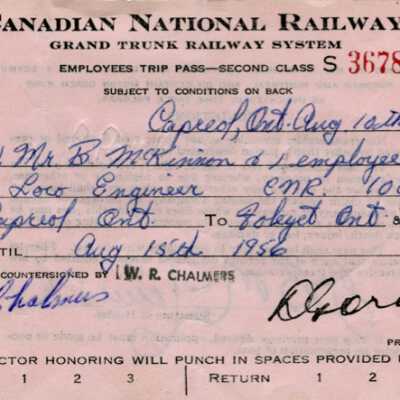 CANADIAN NATIONAL RAILWAY
GRAND TRUNK RAILWAY SYSTEM
EMPLOYEES TRIP PASS—SECOND CLASS S 3678
SUBJECT TO CONDITIONS ON BACK
Capreol, Ont. Aug. 10th
Mr. B. McKinnon & 1 employee
Loco Engineer CNR. 100
Capreol Ont. TO Foleyet Ont. &
NTIL Aug. 15th 1956
COUNTERSIGNED BY W. R. CHALMERS
Chalmers D Gor
PRE
CTOR HONORING WILL PUNCH IN SPACES PROVIDED
1 2 3 RETURN 1 2